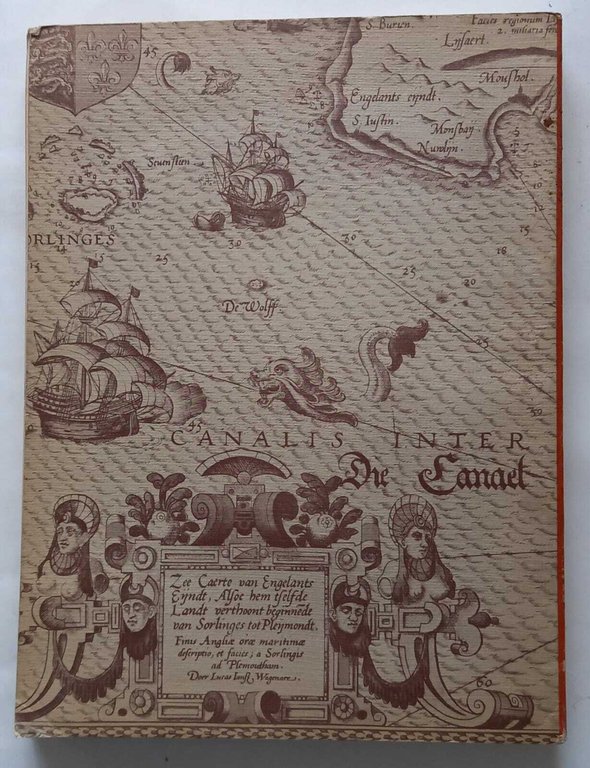 S. Buricn.
Facies regionum
2. miliaria
Lyſaert.
Mouſhol.
Engelants eÿndt.
S. Iuſtin.
Monsbaÿ
45
Sevenſteen
ORLINGES
14
15
15
20
25
30
20
25
30
18
15
25
12
10
De Wolff.
25
30
45
CANALIS INTER
Die Canael
Zee Caerte van Engelants
Eÿndt, Alſoe hem tſelfde
Landt verthoont beginnēde
van Sorlinges tot Pleÿmondt.
Finis Angliæ oræ maritimæ
deſcriptio, et facies, a Sorlingis
ad Plemoudham.
Door Lucas Ianſz Wagenare.
60